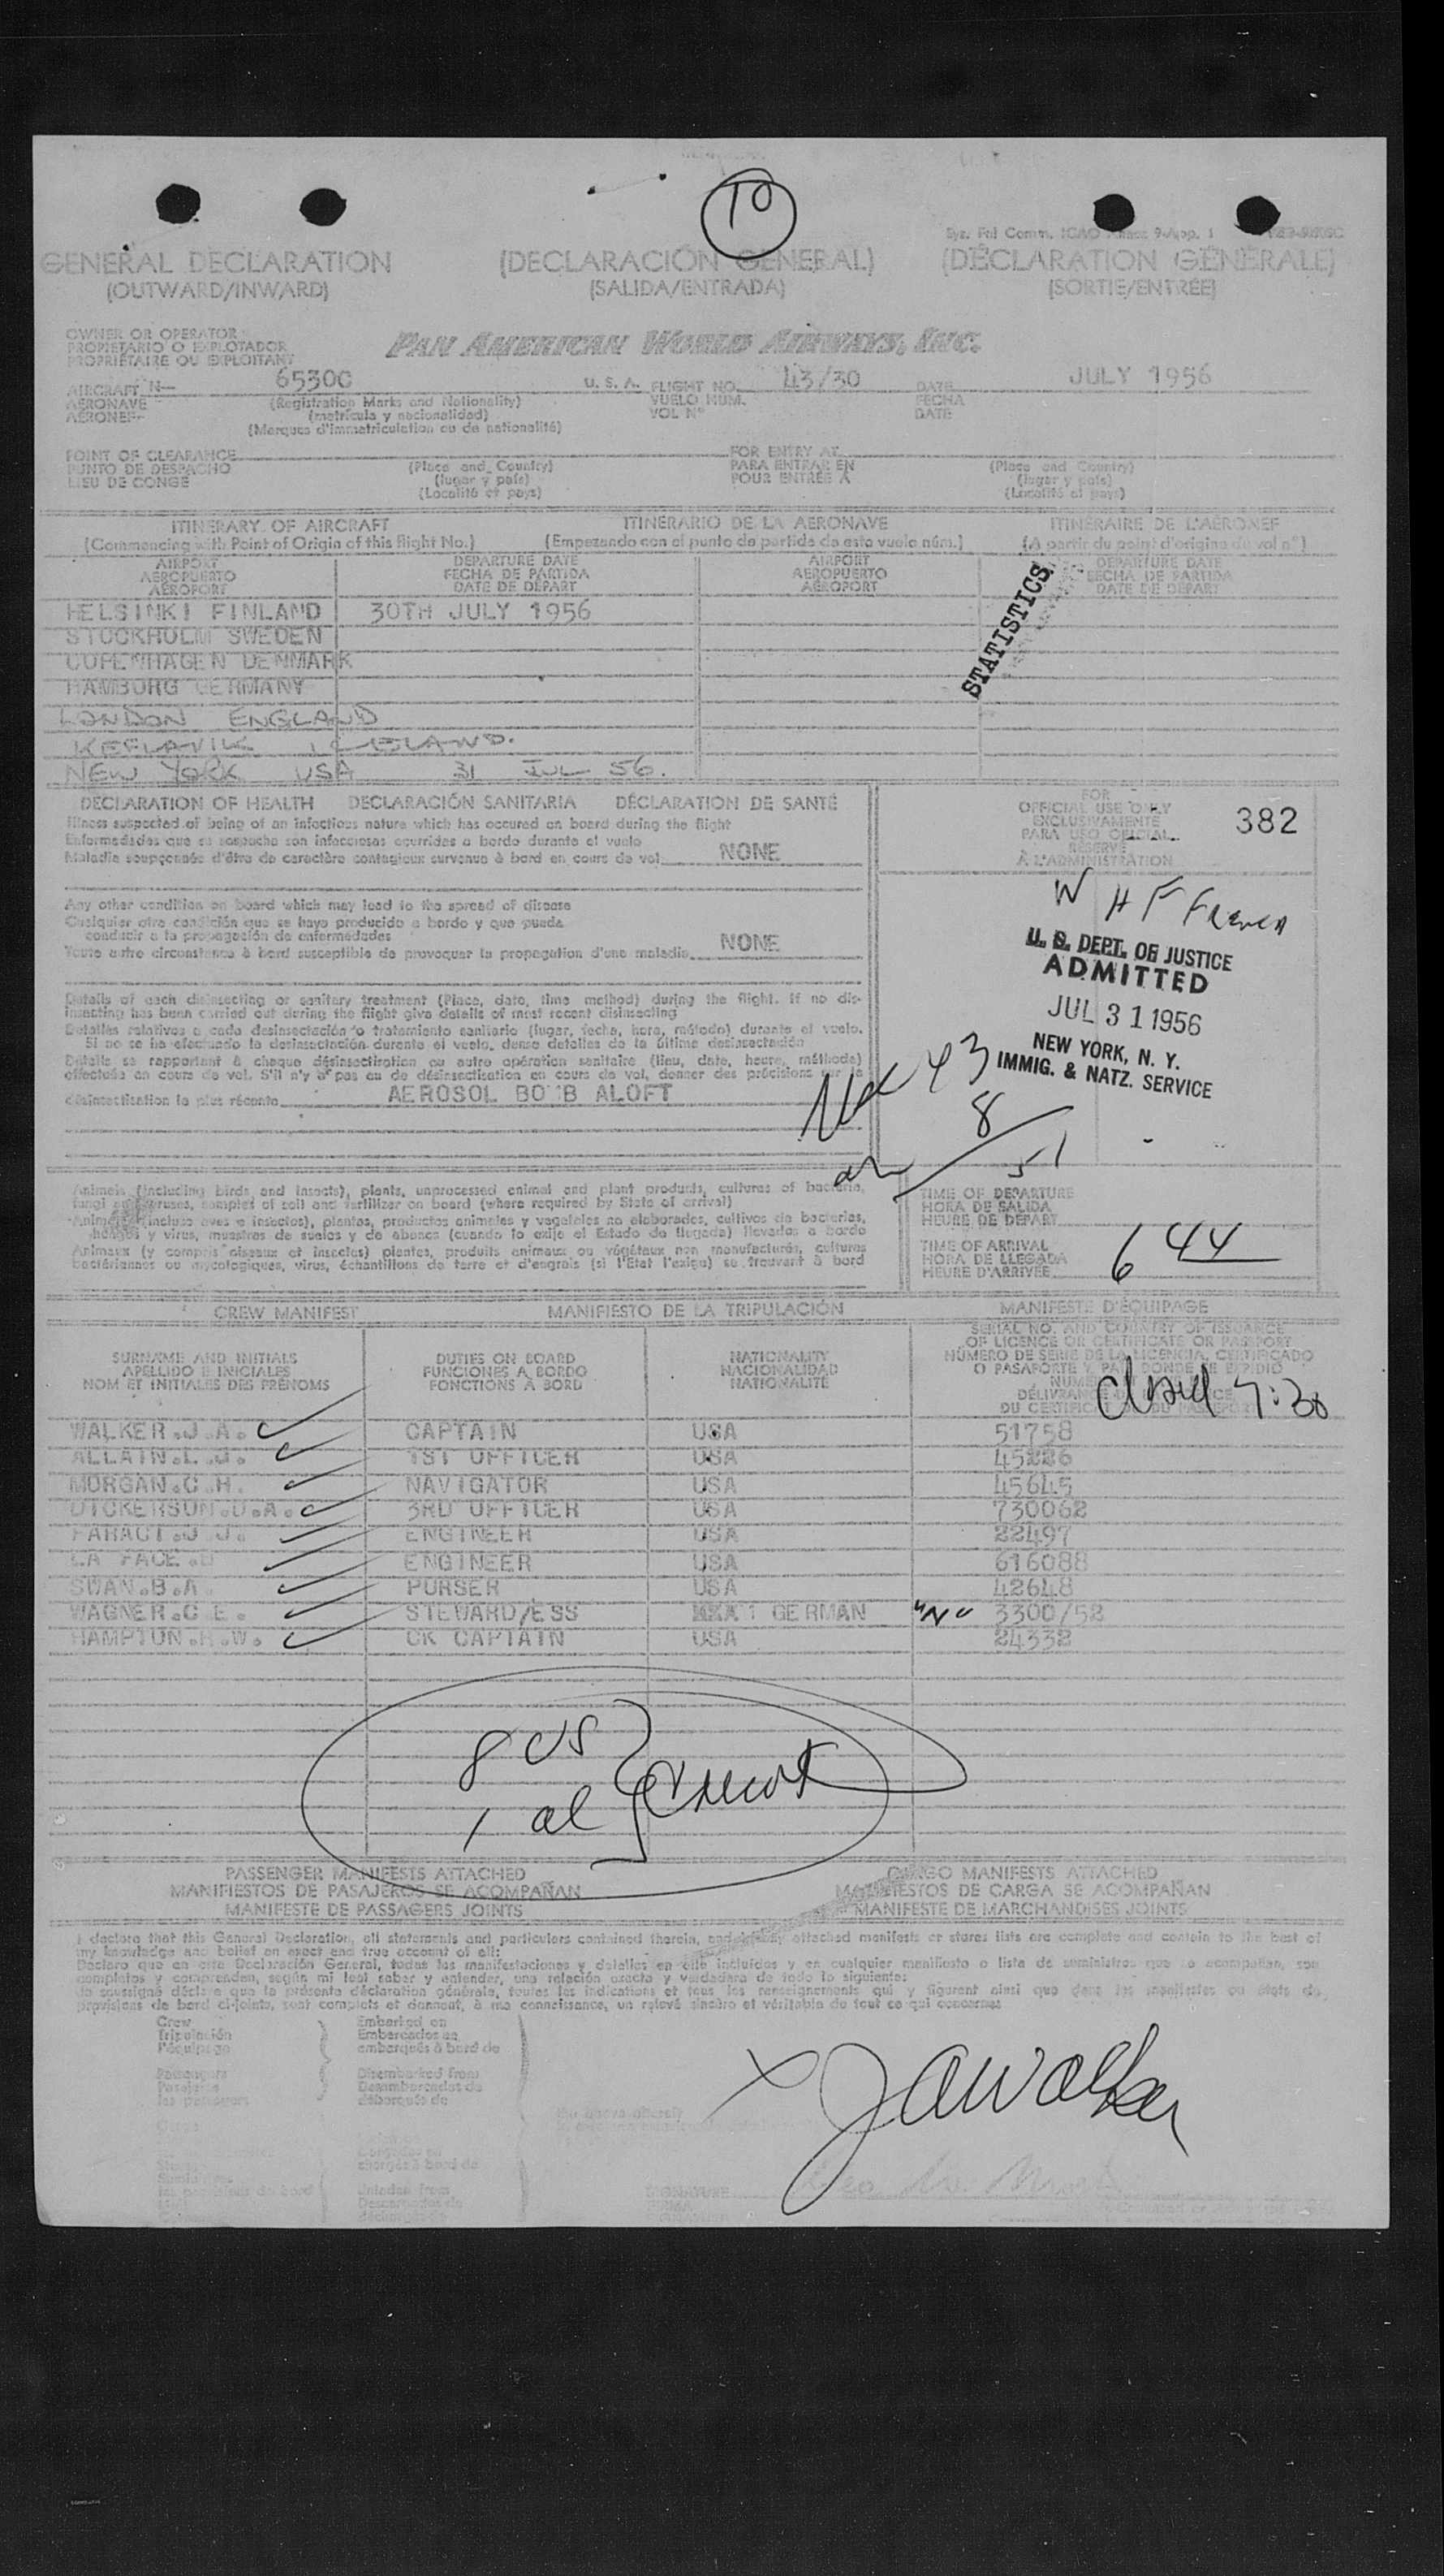 10
Sys. Fnl Comm. ICAO Annex 9-App. 1
GENERAL DECLARATION (DECLARACIÓN GENERAL) (DÉCLARATION GÉNÉRALE)
(OUTWARD/INWARD) (SALIDA/ENTRADA) (SORTIE/ENTRÉE)
OWNER OR OPERATOR
PROPIETARIO O EXPLOTADOR
PROPRIÉTAIRE OU EXPLOITANT
PAN AMERICAN WORLD AIRWAYS, INC.
AIRCRAFT N— 6530C U. S. A. FLIGHT NO. 43/30 DATE JULY 1956
AERONAVE (Registration Marks and Nationality) VUELO NÚM. FECHA
AÉRONEF (matrícula y nacionalidad) VOL N° DATE
(Marques d'immatriculation ou de nationalité)
POINT OF CLEARANCE FOR ENTRY AT
PUNTO DE DESPACHO (Place and Country) PARA ENTRAR EN (Place and Country)
LIEU DE CONGÉ (lugar y país) POUR ENTRÉE A (lugar y país)
(Localité et pays) (Localité et pays)
ITINERARY OF AIRCRAFT ITINERARIO DE LA AERONAVE ITINÉRAIRE DE L'AÉRONEF
(Commencing with Point of Origin of this flight No.) (Empezando con el punto de partida de este vuelo núm.) (A partir du point d'origine du vol n°)
AIRPORT DEPARTURE DATE AIRPORT DEPARTURE DATE
AEROPUERTO FECHA DE PARTIDA AEROPUERTO FECHA DE PARTIDA
AÉROPORT DATE DE DÉPART AÉROPORT DATE DE DÉPART
STATISTICS
HELSINKI FINLAND 30TH JULY 1956
STOCKHOLM SWEDEN
COPENHAGEN DENMARK
HAMBURG GERMANY
LONDON ENGLAND
KEFLAVIK ICELAND.
NEW YORK USA 31 JUL 56.
DECLARATION OF HEALTH DECLARACIÓN SANITARIA DÉCLARATION DE SANTÉ
Illness suspected of being of an infectious nature which has occured on board during the flight
Enfermedades que se sospecha son infecciosas ocurridas a bordo durante el vuelo
Maladie soupçonnée d'être de caractère contagieux survenue à bord en cours de vol NONE
FOR
OFFICIAL USE ONLY
EXCLUSIVAMENTE
PARA USO OFICIAL
RÉSERVÉ
À L'ADMINISTRATION
382
Any other condition on board which may lead to the spread of disease
Cualquier otra condición que se haya producido a bordo y que pueda
conducir a la propagación de enfermedades
Toute autre circonstance à bord susceptible de provoquer la propagation d'une maladie NONE
W H F French
U. S. DEPT. OF JUSTICE
ADMITTED
JUL 31 1956
NEW YORK, N. Y.
IMMIG. & NATZ. SERVICE
Details of each disinsecting or sanitary treatment (Place, date, time method) during the flight. If no dis-
insecting has been carried out during the flight give details of most recent disinsecting
Detalles relativos a cada desinsectación o tratamiento sanitario (lugar, fecha, hora, método) durante el vuelo.
Si no se ha efectuado la desinsectación durante el vuelo, dense detalles de la última desinsectación
Détails se rapportant à chaque désinsectisation ou autre opération sanitaire (lieu, date, heure, méthode)
effectuée en cours de vol. S'il n'y a pas eu de désinsectisation en cours de vol, donner des précisions sur la
désinsectisation la plus récente AEROSOL BOMB ALOFT
43
8
51
Animals (including birds and insects), plants, unprocessed animal and plant products, cultures of bacteria,
fungi or viruses, samples of soil and fertilizer on board (where required by State of arrival)
Animales (incluso aves e insectos), plantas, productos animales y vegetales no elaborados, cultivos de bacterias,
hongos y virus, muestras de suelos y de abonos (cuando lo exija el Estado de llegada) llevados a bordo
Animaux (y compris oiseaux et insectes) plantes, produits animaux ou végétaux non manufacturés, cultures
bactériennes ou mycologiques, virus, échantillons de terre et d'engrais (si l'Etat l'exige) se trouvant à bord
TIME OF DEPARTURE
HORA DE SALIDA
HEURE DE DÉPART
TIME OF ARRIVAL
HORA DE LLEGADA
HEURE D'ARRIVÉE
6 44
CREW MANIFEST MANIFIESTO DE LA TRIPULACIÓN MANIFESTE D'ÉQUIPAGE
SURNAME AND INITIALS DUTIES ON BOARD NATIONALITY SERIAL NO. AND COUNTRY OF ISSUANCE
APELLIDO E INICIALES FUNCIONES A BORDO NACIONALIDAD OF LICENCE OR CERTIFICATE OR PASSPORT
NOM ET INITIALES DES PRÉNOMS FONCTIONS À BORD NATIONALITÉ NÚMERO DE SERIE DE LA LICENCIA, CERTIFICADO
O PASAPORTE Y PAÍS DONDE SE EXPIDIÓ
closed 7:30
WALKER.J.A. CAPTAIN USA 51758
ALLAIN.L.J. 1ST OFFICER USA 45226
MORGAN.C.H. NAVIGATOR USA 45645
DICKERSON.D.A. 3RD OFFICER USA 730062
J.J. ENGINEER USA 22497
LA FACE ENGINEER USA 616088
SWAN.B.A. PURSER USA 42648
WAGNER.C.E. STEWARD/ESS GERMAN "N" 3300/52
HAMPTON.R.W. CK CAPTAIN USA 24332
8 US
1 al
PASSENGER MANIFESTS ATTACHED CARGO MANIFESTS ATTACHED
MANIFIESTOS DE PASAJEROS SE ACOMPAÑAN MANIFIESTOS DE CARGA SE ACOMPAÑAN
MANIFESTE DE PASSAGERS JOINTS MANIFESTE DE MARCHANDISES JOINTS
I declare that this General Declaration, all statements and particulars contained therein, and any attached manifests or stores lists are complete and contain to the best of
my knowledge and belief an exact and true account of all:
Declaro que en esta Declaración General, todas las manifestaciones y detalles en ella incluidos y en cualquier manifiesto o lista de suministros que la acompañan, son
completos y comprenden, según mi leal saber y entender, una relación exacta y verdadera de todo lo siguiente:
Je soussigné déclare que la présente déclaration générale, toutes les indications et tous les renseignements qui y figurent ainsi que dans les manifestes ou états de
provisions de bord ci-joints, sont complets et donnent, à ma connaissance, un relevé sincère et véritable de tout ce qui concerne:
Crew Embarked on
Tripulación Embarcados en
l'équipage embarqués à bord de
Passengers Disembarked from
Pasajeros Desembarcados de
les passagers débarqués de
x JAWalker
SIGNATURE